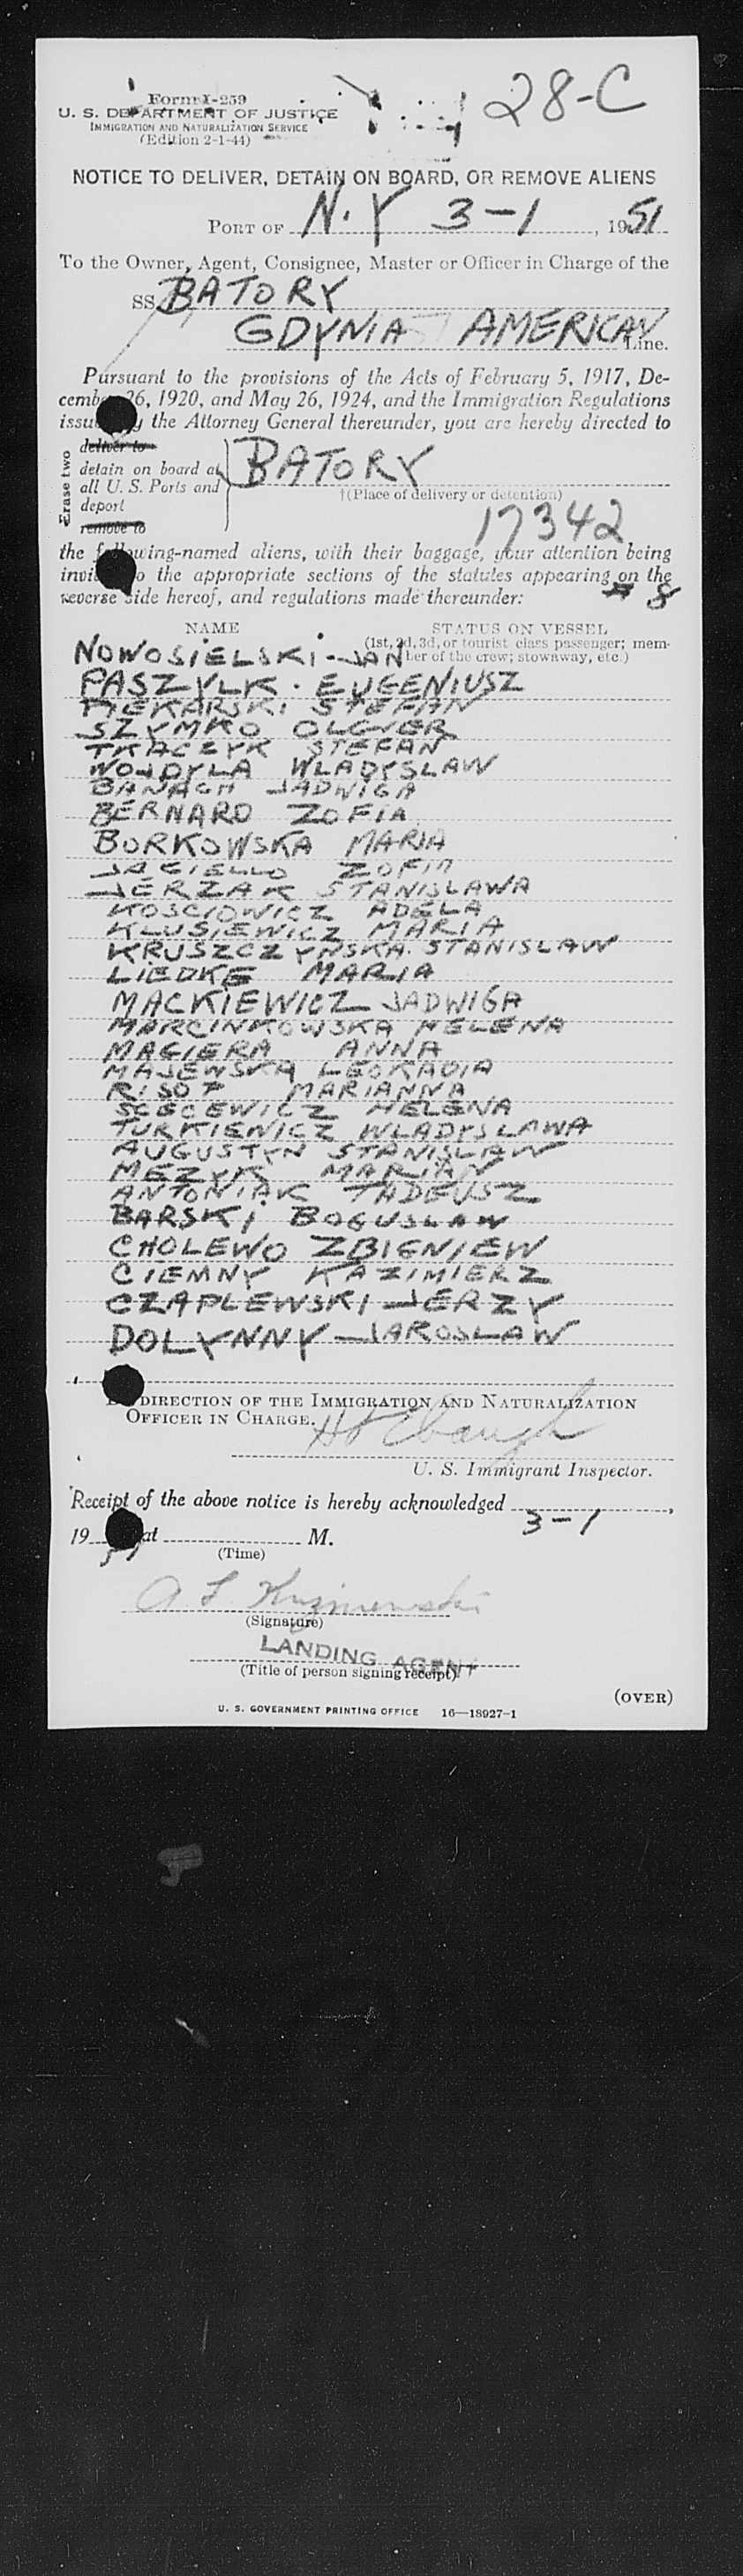 28-C
Form I-259
U. S. DEPARTMENT OF JUSTICE
IMMIGRATION AND NATURALIZATION SERVICE
(Edition 2-1-44)
NOTICE TO DELIVER, DETAIN ON BOARD, OR REMOVE ALIENS
PORT OF N.Y 3-1, 1951
To the Owner, Agent, Consignee, Master or Officer in Charge of the
SS BATORY
GDYNIA AMERICAN Line.
Pursuant to the provisions of the Acts of February 5, 1917, De-
cember 26, 1920, and May 26, 1924, and the Immigration Regulations
issued by the Attorney General thereunder, you are hereby directed to
Erase two
deliver to
detain on board at
all U. S. Ports and
deport
remove to
BATORY
†(Place of delivery or detention)
17342
the following-named aliens, with their baggage, your attention being
invited to the appropriate sections of the statutes appearing on the
reverse side hereof, and regulations made thereunder: # 8
NAME STATUS ON VESSEL
(1st, 2d, 3d, or tourist class passenger; mem-
ber of the crew; stowaway, etc.)
NOWOSIELSKI - JAN
PASZYLK . EUGENIUSZ
PIEKARSKI STEFAN
SZYMKO OLGIER
TKACZYK STEFAN
WOJDYLA WLADYSLAW
BANACH JADWIGA
BERNARD ZOFIA
BORKOWSKA MARIA
JAGIELLO ZOFIA
JERZAK STANISLAWA
KOSCIOWICZ ADELA
KLUSIEWICZ MARIA
KRUSZCZYNSKA. STANISLAW
LIEDKE MARIA
MACKIEWICZ JADWIGA
MARCINKOWSKA HELENA
MAGIERA ANNA
MAJEWSKA LEOKADIA
MARIANNA
SCECEWICZ HELENA
TURKIEWICZ WLADYSLAWA
AUGUSTYN STANISLAW
MEZYK MARIAN
ANTONIAK TADEUSZ
BARSKI BOGUSLAW
CHOLEWO ZBIGNIEW
CIEMNY KAZIMIERZ
CZAPLEWSKI JERZY
DOLYNNY JAROSLAW
BY DIRECTION OF THE IMMIGRATION AND NATURALIZATION
OFFICER IN CHARGE.
U. S. Immigrant Inspector.
Receipt of the above notice is hereby acknowledged 3-1,
1951 at M.
(Time)
(Signature)
LANDING AGENT
(Title of person signing receipt)
(OVER)
U. S. GOVERNMENT PRINTING OFFICE 16—18927-1